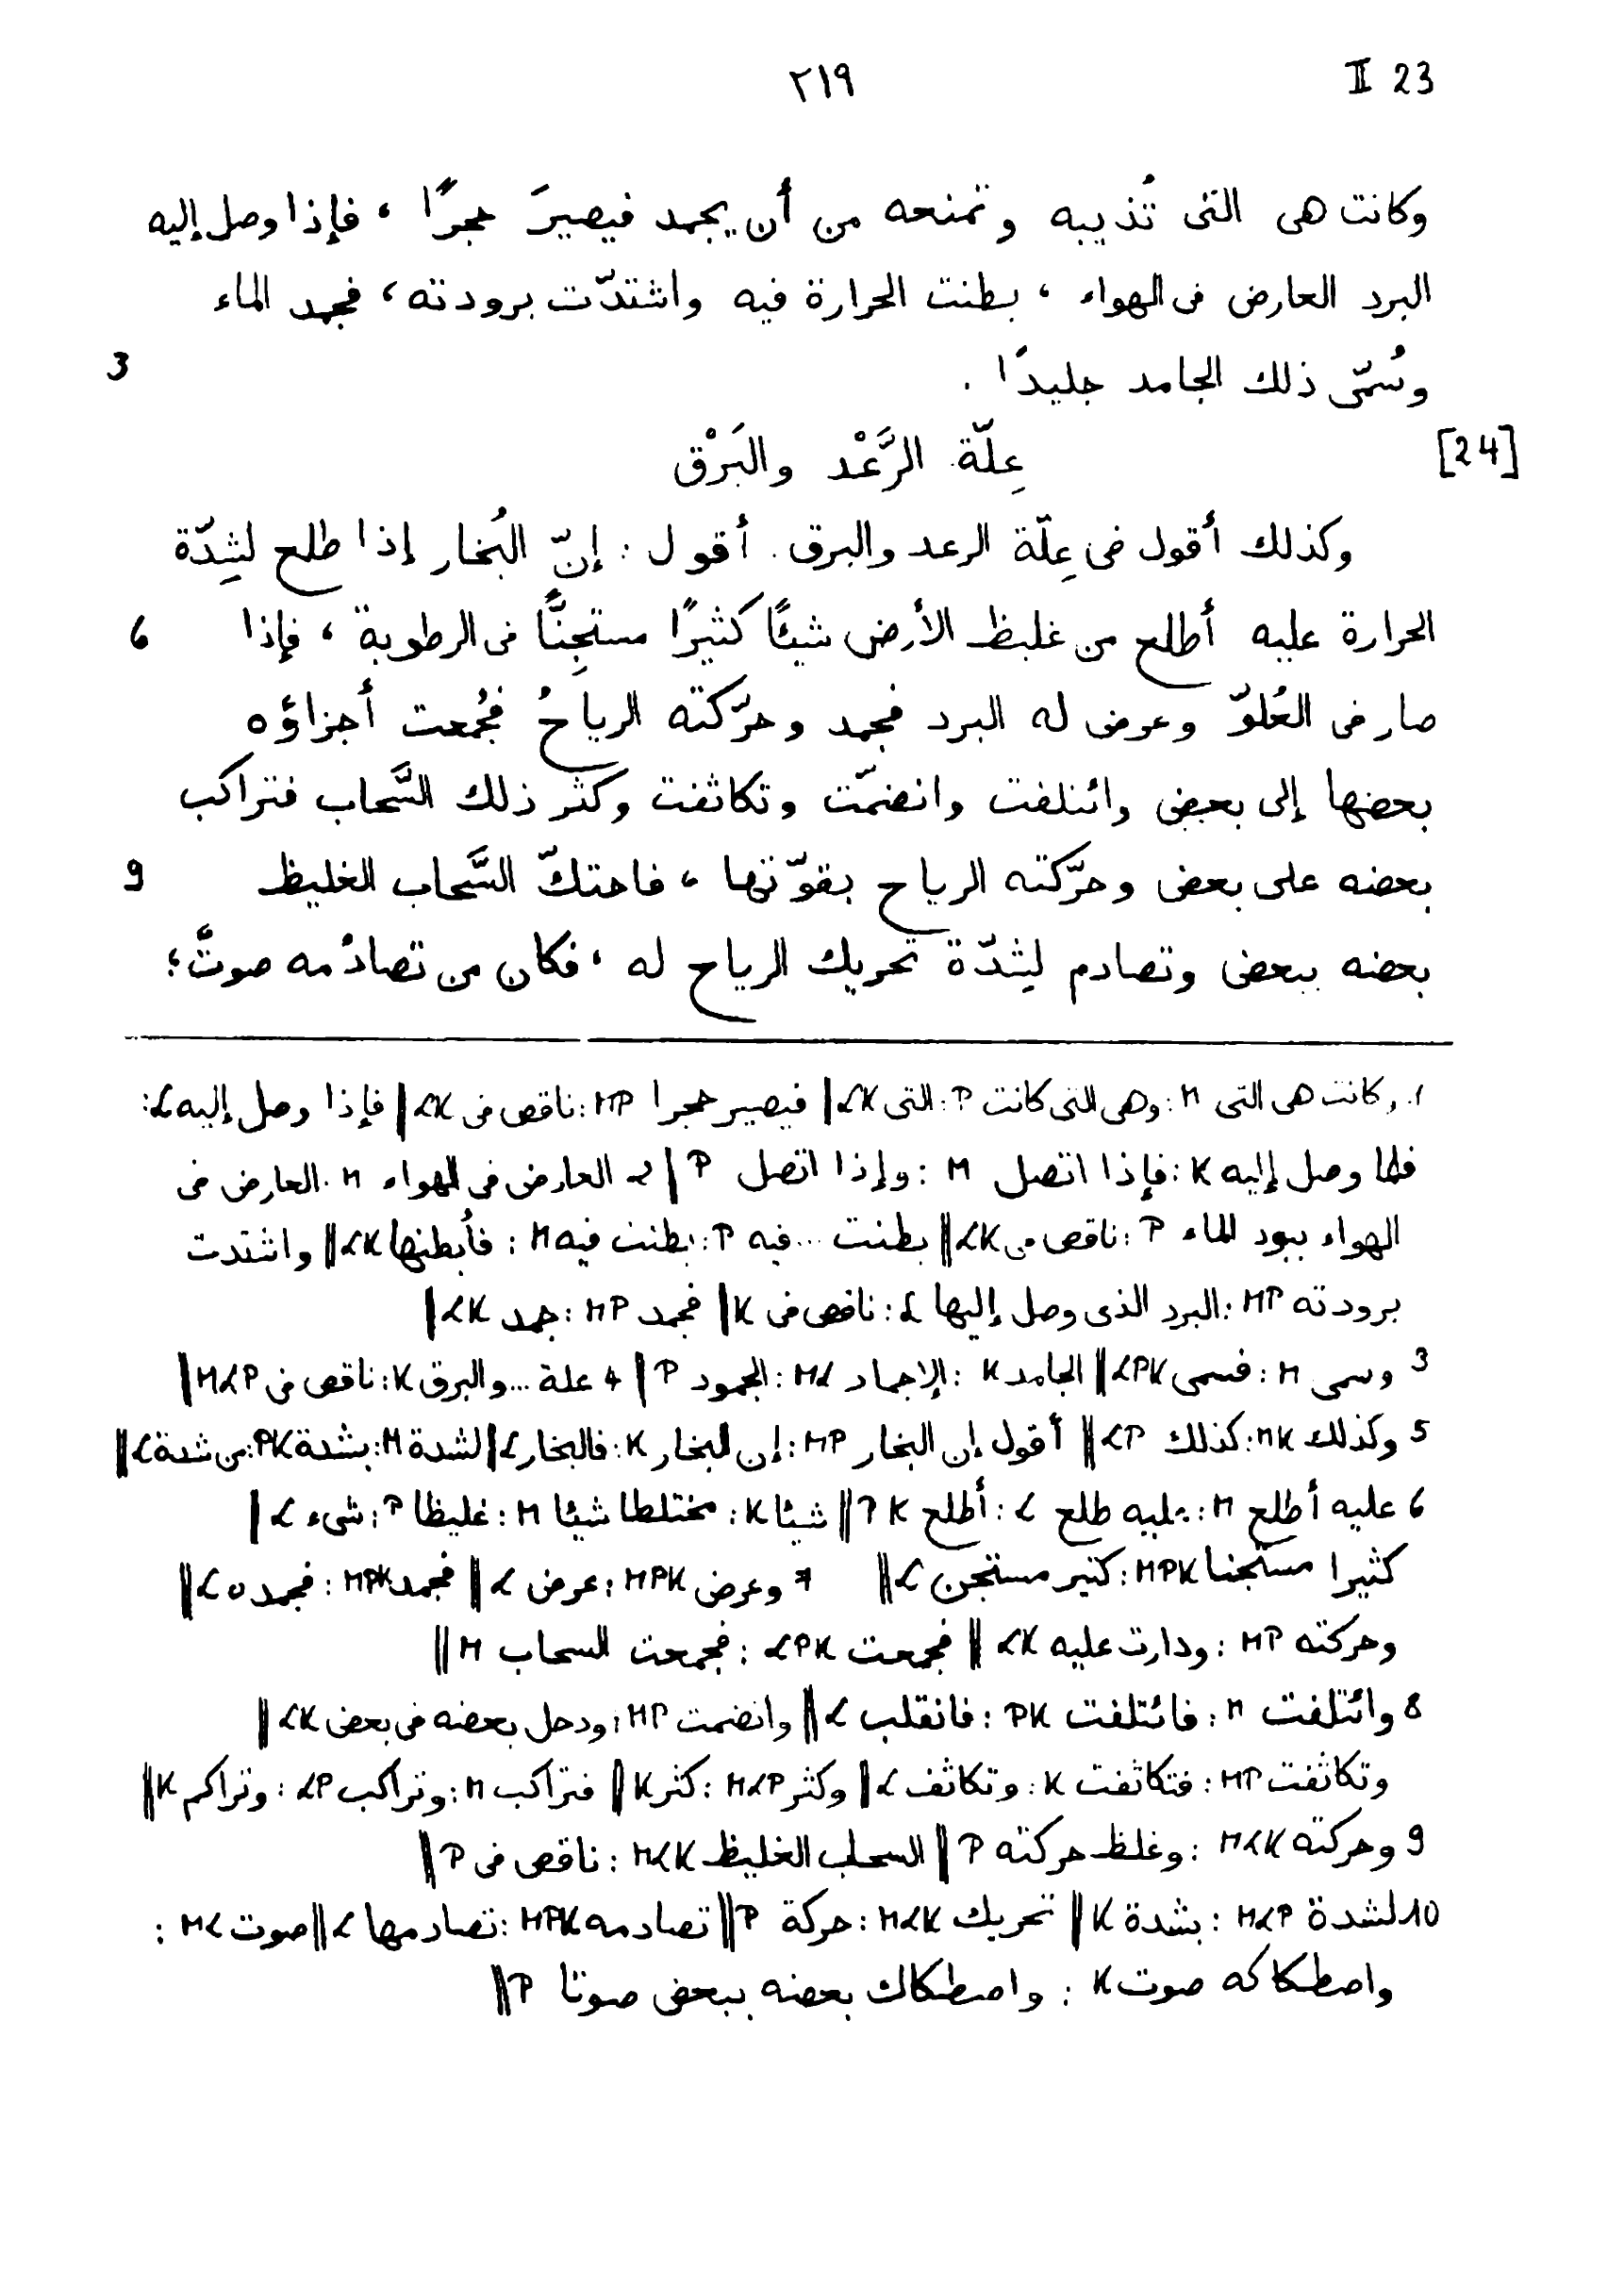 ٢١٩ II 23
وكانت هى التى تُذيبه وتمنعه من أن يجمد فيصيرَ حجرًا ، فإذا وصل إليه
البرد العارض فى الهواء ، بطنت الحرارة فيه واشتدّت برودته ، فجمد الماء
وسُمّى ذلك الجامد جليدًا . 3
[24] عِلّة الرَّعْد والبَرْق
وكذلك أقول فى عِلّة الرعد والبرق . أقول : إنّ البُخار إذا طلع لشِدّة
الحرارة عليه أطلع من غليظ الأرض شيئًا كثيرًا مستجِنًّا فى الرطوبة ، فإذا 6
صار فى العُلوّ وعرض له البرد فجمد وحرّكته الرياحُ فجُمعت أجزاؤه
بعضها إلى بعض وائتلفت وانضمّت وتكاثفت وكثر ذلك السَّحاب فتراكب
بعضه على بعض وحرّكته الرياح بقوّتها ، فاحتكّ السَّحاب الغليظ 9
بعضه ببعض وتصادم لشِدّة تحريك الرياح له ، فكان من تصادُمه صوتٌ ؛
١. وكانت هى التى M : وهى التى كانت P : التى LK || فيصير حجرا MP : ناقص فى LK || فإذا وصل إليه L :
فلما وصل إليه K : فإذا اتصل M : وإذا اتصل P || ٢ العارض فى الهواء M : العارض فى
الهواء ببرد الماء P : ناقص فى LK || بطنت ... فيه P : بطنت فيه M : فأبطنها LK || واشتدت
برودته MP : البرد الذى وصل إليها L : ناقص فى K || فجمد MP : جمد LK ||
3 وسمى M : فسمى LPK || الجامد K : الإجماد ML : الجمود P || 4 علة ... والبرق K : ناقص فى MLP ||
5 وكذلك MK : كذلك LP || أقول إن البخار MP : إن البخار K : فالبخار L || لشدة M : بشدة PK : من شدة L ||
6 عليه أطلع M : عليه طلع L : أطلع K P || شيئا K : مختلطا شيئا M : غليظا P : شىء L ||
كثيرا مستجنا MPK : كثير مستجن L || 7 وعرض MPK : عرض L || فجمد MPK : فجمده L ||
وحركته MP : ودارت عليه LK || فجمعت LPK : فجمعت السحاب M ||
8 وائتلفت M : فائتلفت PK : فانقلب L || وانضمت MP : ودخل بعضه فى بعض LK ||
وتكاثفت MP : فتكاثفت K : وتكاثف L || وكثر MLP : كثر K || فتراكب M : وتراكب LP : وتراكم K ||
9 وحركته MLK : وغلظ حركته P || السحاب الغليظ MLK : ناقص فى P ||
10 لشدة MLP : بشدة K || تحريك MLK : حركة P || تصادمه MPK : تصادمها L || صوت ML :
واصطكاكه صوت K : واصطكاك بعضه ببعض صوتا P ||